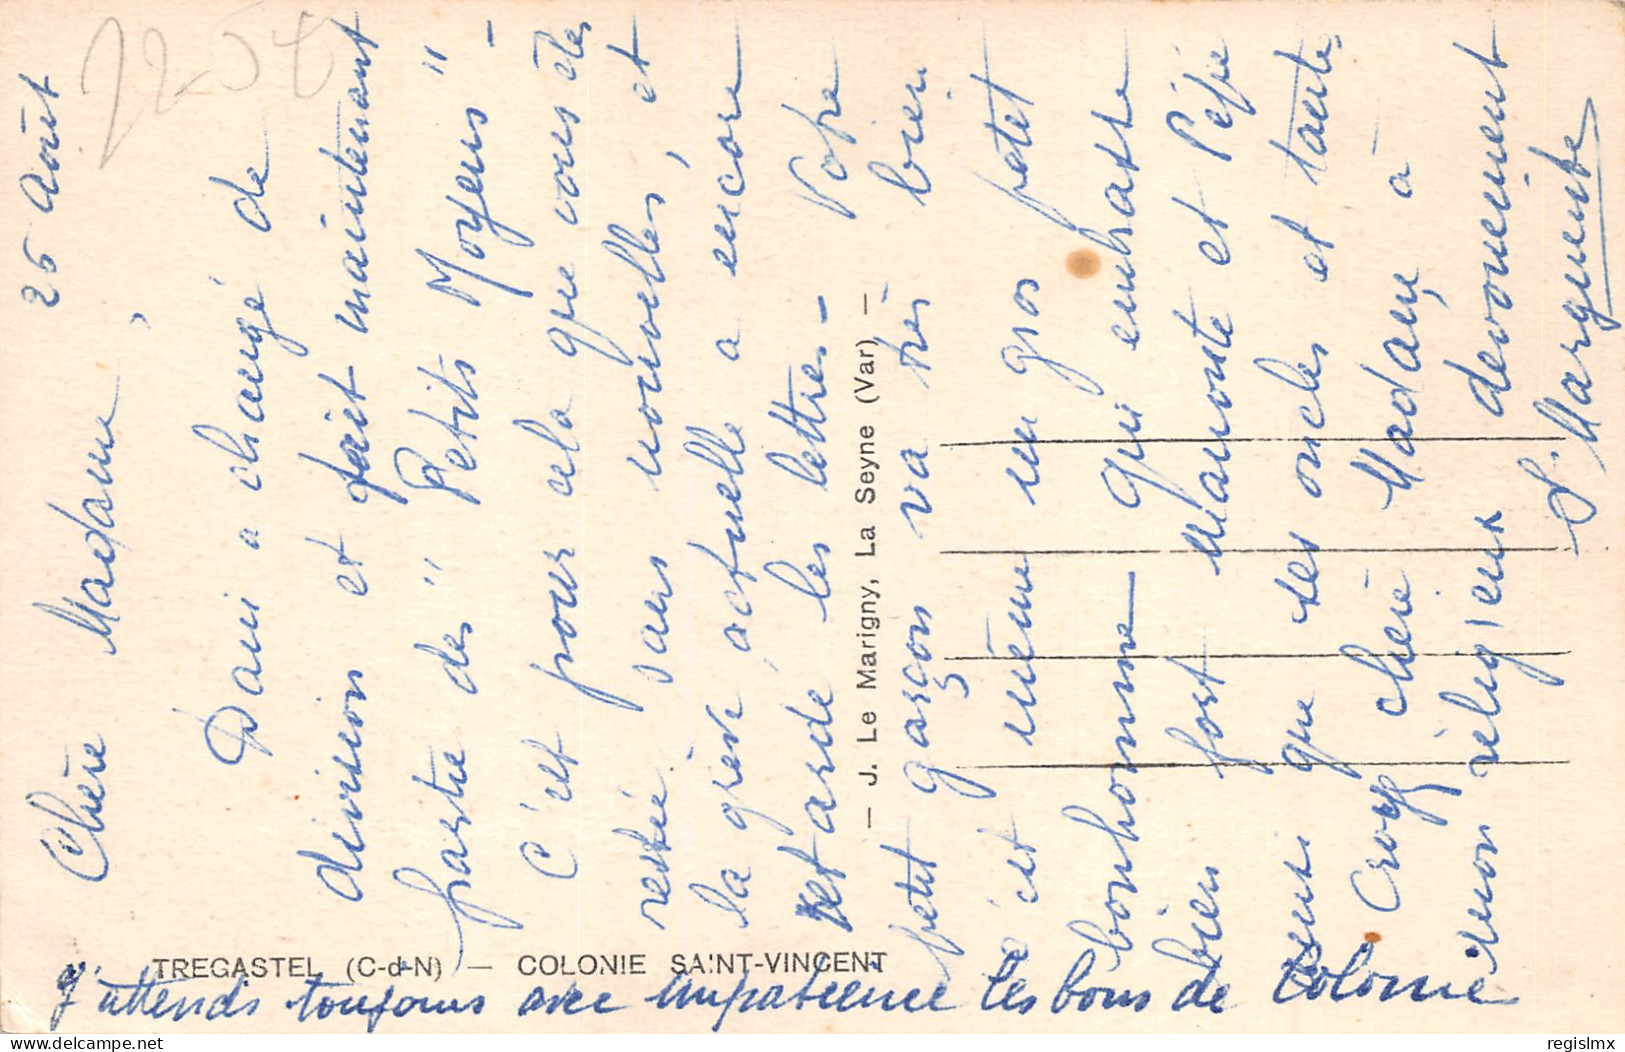 26 Août
Chère Madame,
Dani a changé de
division et fait maintenant
partie des " Petits Moyens " -
C'est pour cela que vous êtes
restée sans nouvelles, et
la grève actuelle a encore
retardé les lettres - Votre
petit garçon va très bien
c'est même un gros petit
bonhomme - qui embrasse
bien fort Mamoute et Pépé
ainsi que ses oncles et tantes
Croyez chère Madame, à
mon religieux dévouement
S. Marguerite
J'attends toujours avec impatience les bons de Colonie
TREGASTEL (C-d-N) — COLONIE SAINT-VINCENT
— J. Le Marigny, La Seyne (Var) —
delcampe.net
regislmx